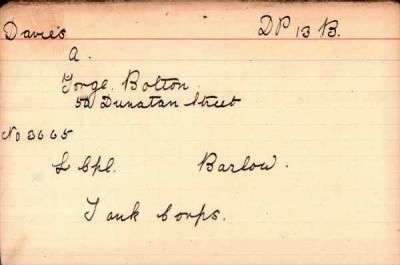 Davies DP 13 B.
A.
Tonge. Bolton
50 Dunstan Street
No 3665
L Cpl. Barlow.
Tank Corps.